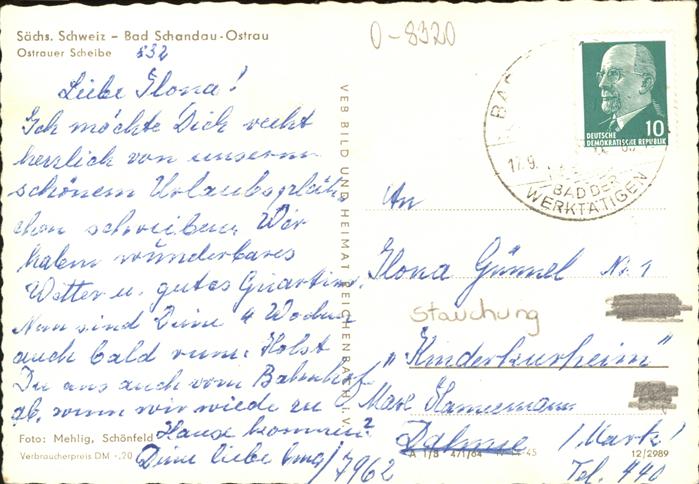 Sächs. Schweiz – Bad Schandau-Ostrau
Ostrauer Scheibe 532
0-8320
Liebe Ilona!
Ich möchte Dich recht
herzlich von unserm
schönem Urlaubsplätz
chen schreiben. Wir
haben wunderbares
Wetter u. gutes Quartier.
Nun sind Deine 4 Wochen
auch bald rum. Holst
Du uns auch vom Bahnhof
ab, wenn wir wieder zu
Hause kommen?
Deine liebe Oma!
Foto: Mehlig, Schönfeld
Verbraucherpreis DM -,20
VEB BILD UND HEIMAT REICHENBACH I. V.
DEUTSCHE
DEMOKRATISCHE REPUBLIK
10
BAD
17.9.
BAD DER
WERKTÄTIGEN
An
Ilona Günnel No 1
Stauchung
"Kinderkurheim"
Max Hannemann
7962 Dahme /Mark!
Tel. 440
A 1/B 471/64
45
12/2989